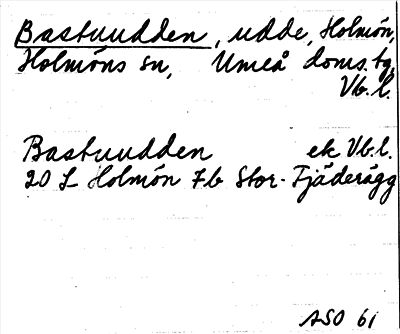 Bastuudden, udde, Holmön,
Holmöns sn, Umeå doms.tg,
Vb.l.
Bastuudden ek Vb.l.
20 L Holmön 7b Stor-Fjäderägg
ASO 61